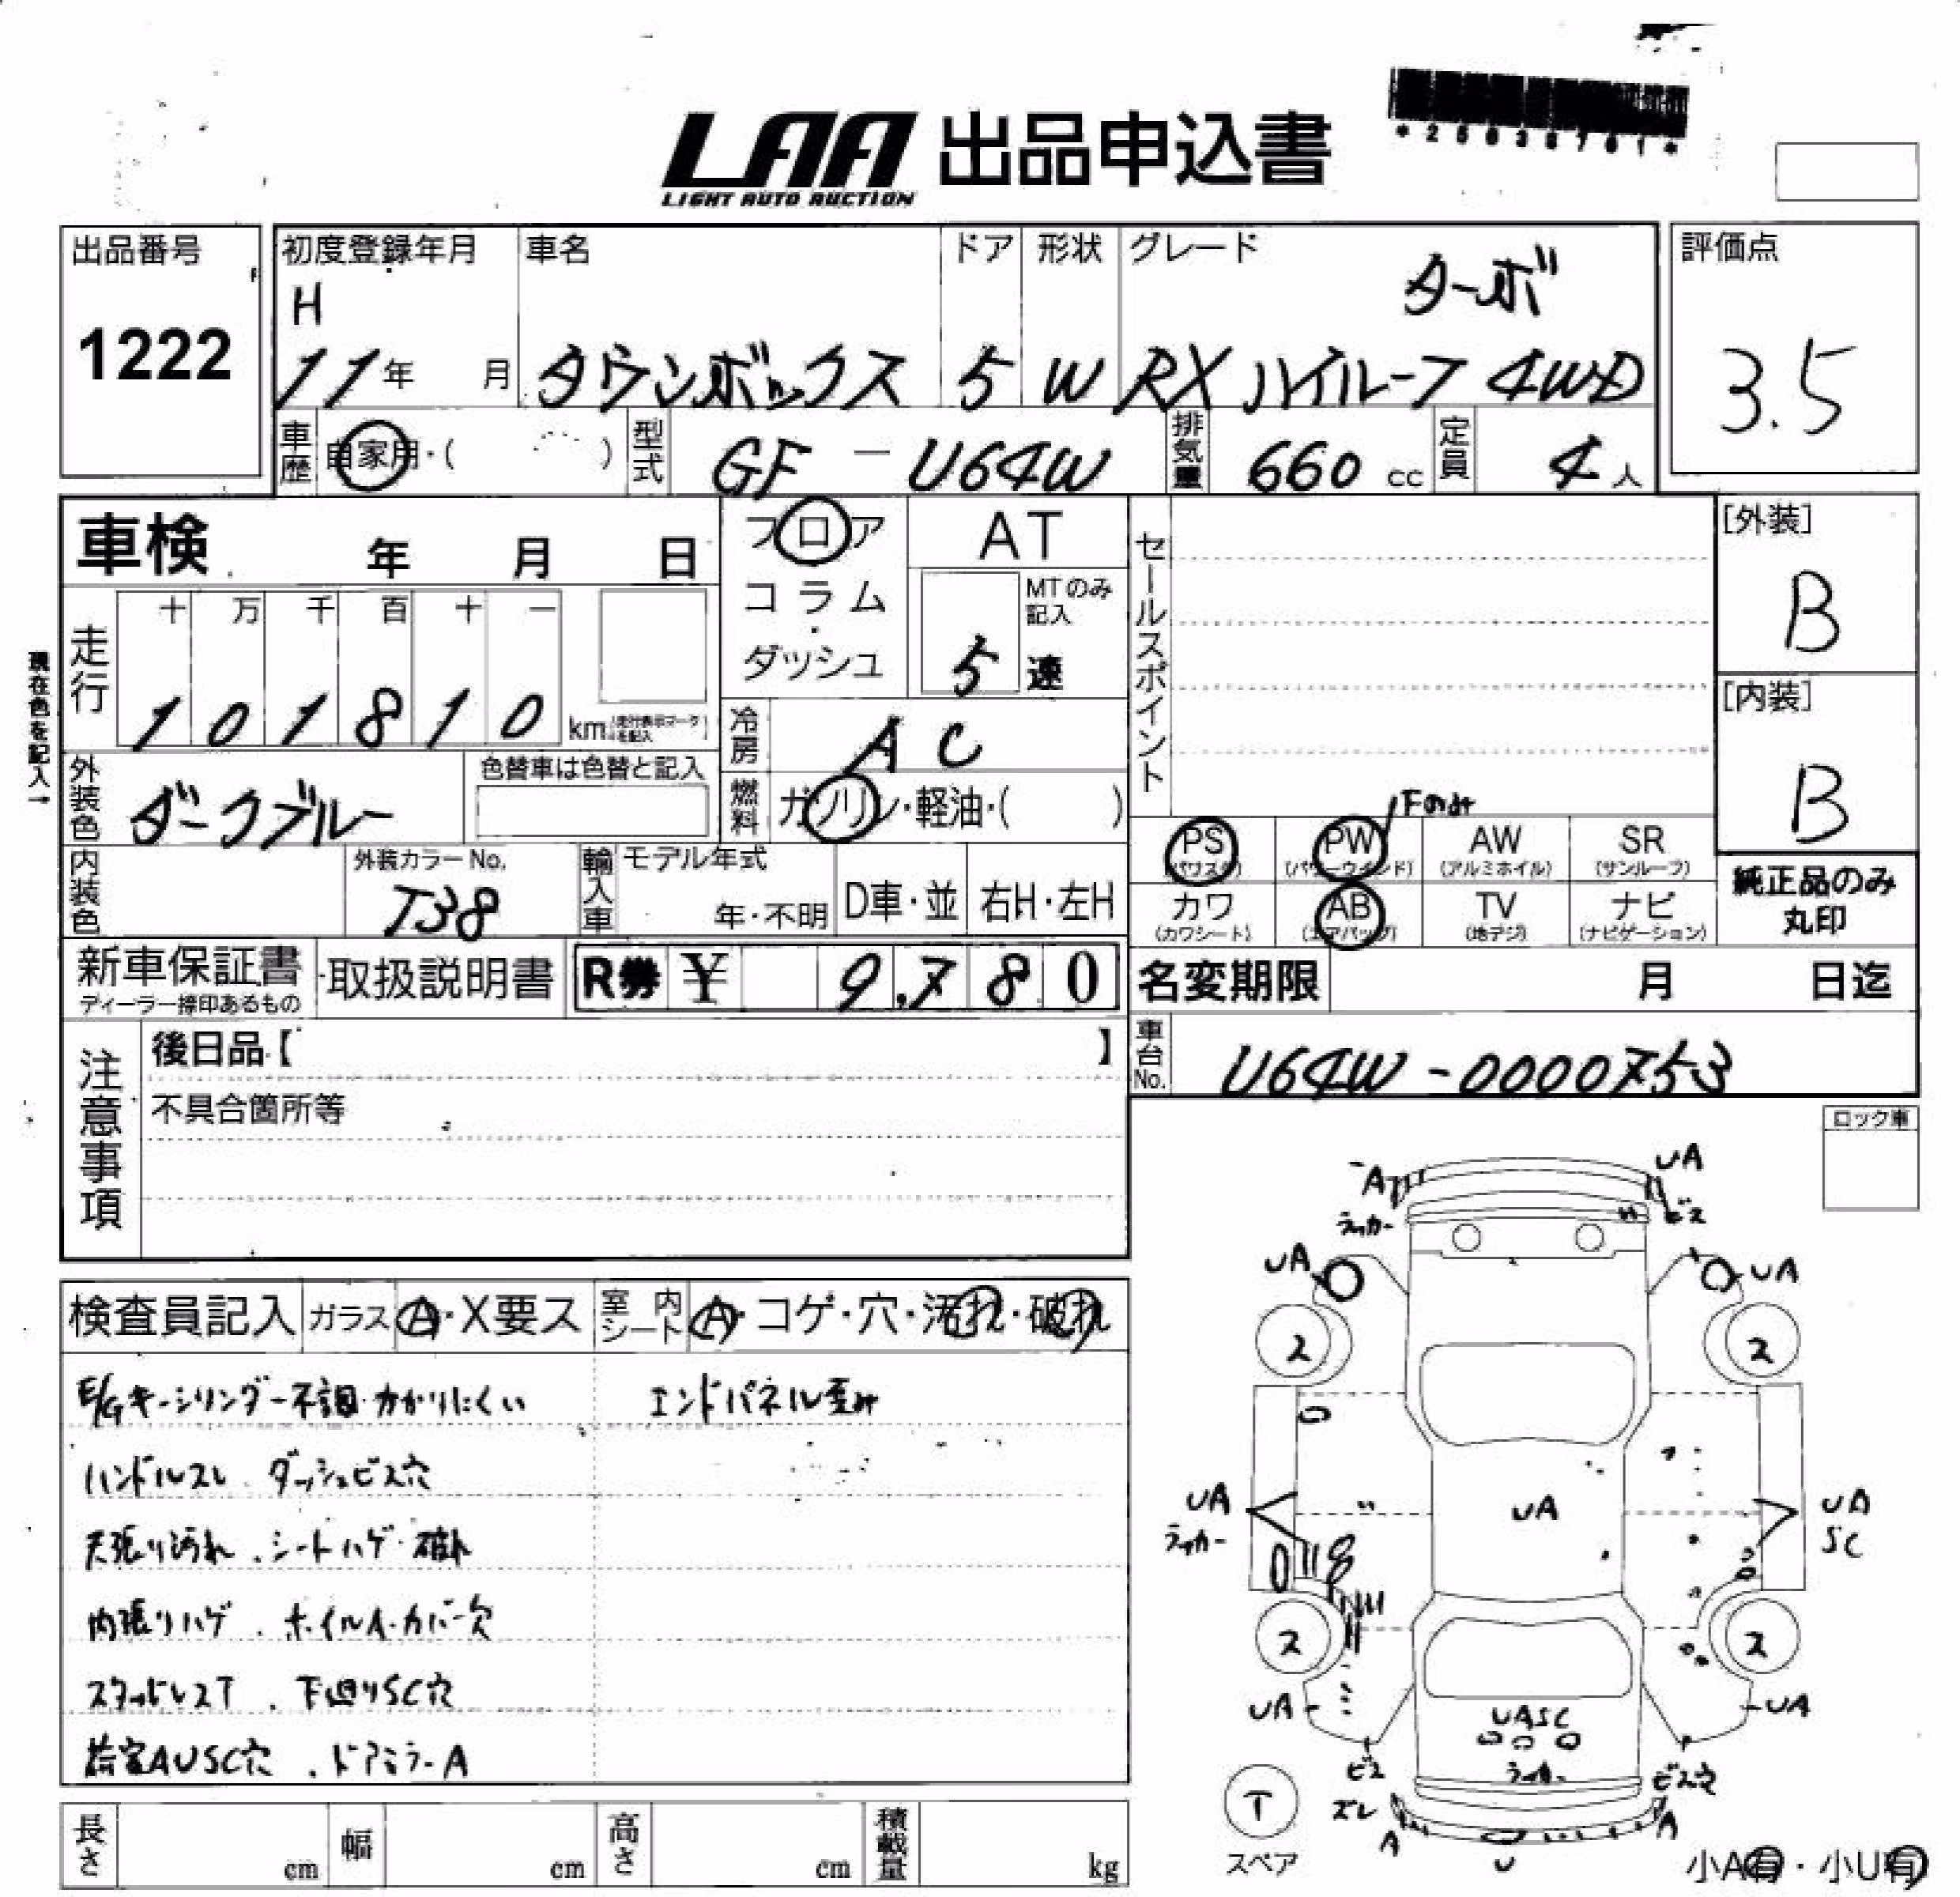 LAA 出品申込書
LIGHT AUTO AUCTION
*25038701*
出品番号
1222
初度登録年月
H
11年 月
車名
タウンボックス
ドア
5
形状
W
グレード
ターボ
RX ハイルーフ 4WD
評価点
3.5
車歴
自家用・( )
型式
GF - U64W
排気量
660 cc
定員
4 人
車検 年 月 日
フロア
コラム
・
ダッシュ
AT
MTのみ
記入
5 速
セールスポイント
[外装]
B
[内装]
B
現在色を記入→
走行
十 万 千 百 十 一
1 0 1 8 1 0 km (走行表示マークを記入)
冷房
AC
外装色
ダークブルー
色替車は色替と記入
燃料
ガソリン・軽油・( )
Fのみ
PS
(パワステ)
PW
(パワーウインド)
AW
(アルミホイル)
SR
(サンルーフ)
カワ
(カワシート)
AB
(エアバッグ)
TV
(地デジ)
ナビ
(ナビゲーション)
純正品のみ
丸印
内装色
外装カラーNo.
T38
輸入車
モデル年式
年・不明
D車・並
右H・左H
新車保証書
ディーラー捺印あるもの
・取扱説明書
R券 ¥ 9,780
名変期限 月 日迄
車台No.
U64W-0000753
注意事項
後日品【 】
不具合箇所等
ロック車
検査員記入
ガラス
A・X要ス
室内シート
A・コゲ・穴・汚れ・破れ
E/Gキーシリンダー不調・かかりにくい
エンドパネル歪み
ハンドルスレ ダッシュビス穴
天張り汚れ、シートハゲ・破れ
内張りハゲ、ホイルA・カバー欠
スタッドレスT、下廻りSC穴
荷室AUSC穴、ドアミラーA
A
ラッカー
UA
ビス
UA
UA
2
2
UA
ラッカー
UA
UA
SC
2
2
UA
UASC
ラッカー
UA
ビス
ビス穴
ズレ
A
U
A
T
スペア
小A有・小U有
長さ cm
幅 cm
高さ cm
積載量 kg